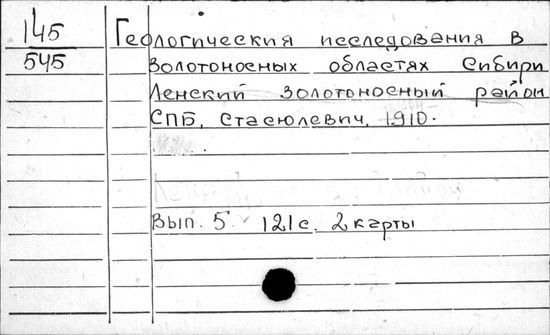 145
545
Геологическия исследования в
золотоносных областях Сибири
Ленский золотоносный район
СПБ, Стасюлевич, 1910.
Вып. 5 121 с. 2 карты